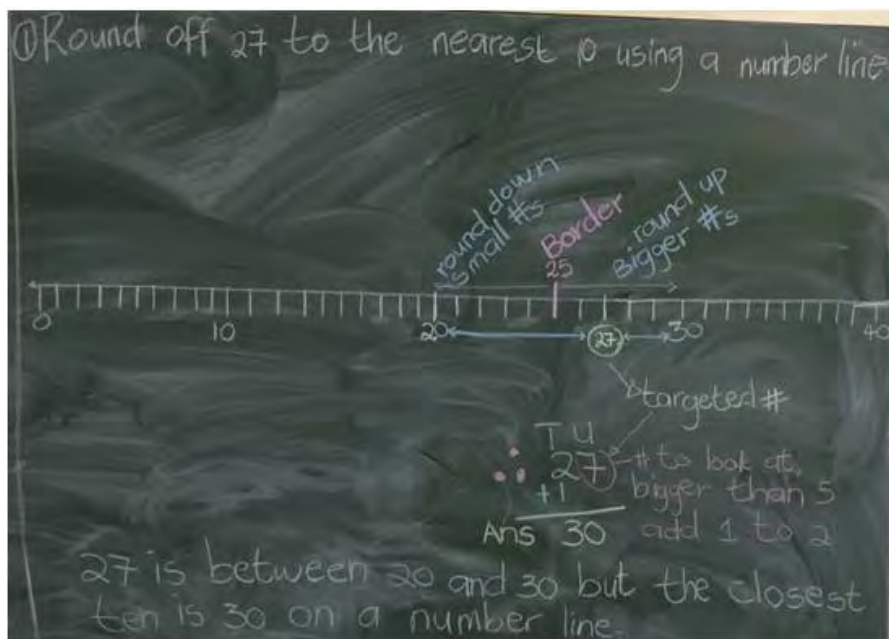 ① Round off 27 to the nearest 10 using a number line
round down
small #s
Border
25
round up
Bigger #s
0 10 20 27 30 40
targeted #
T U
∴ 27 # to look at,
bigger than 5
+1
Ans 30 add 1 to 2
27 is between 20 and 30 but the closest
ten is 30 on a number line.